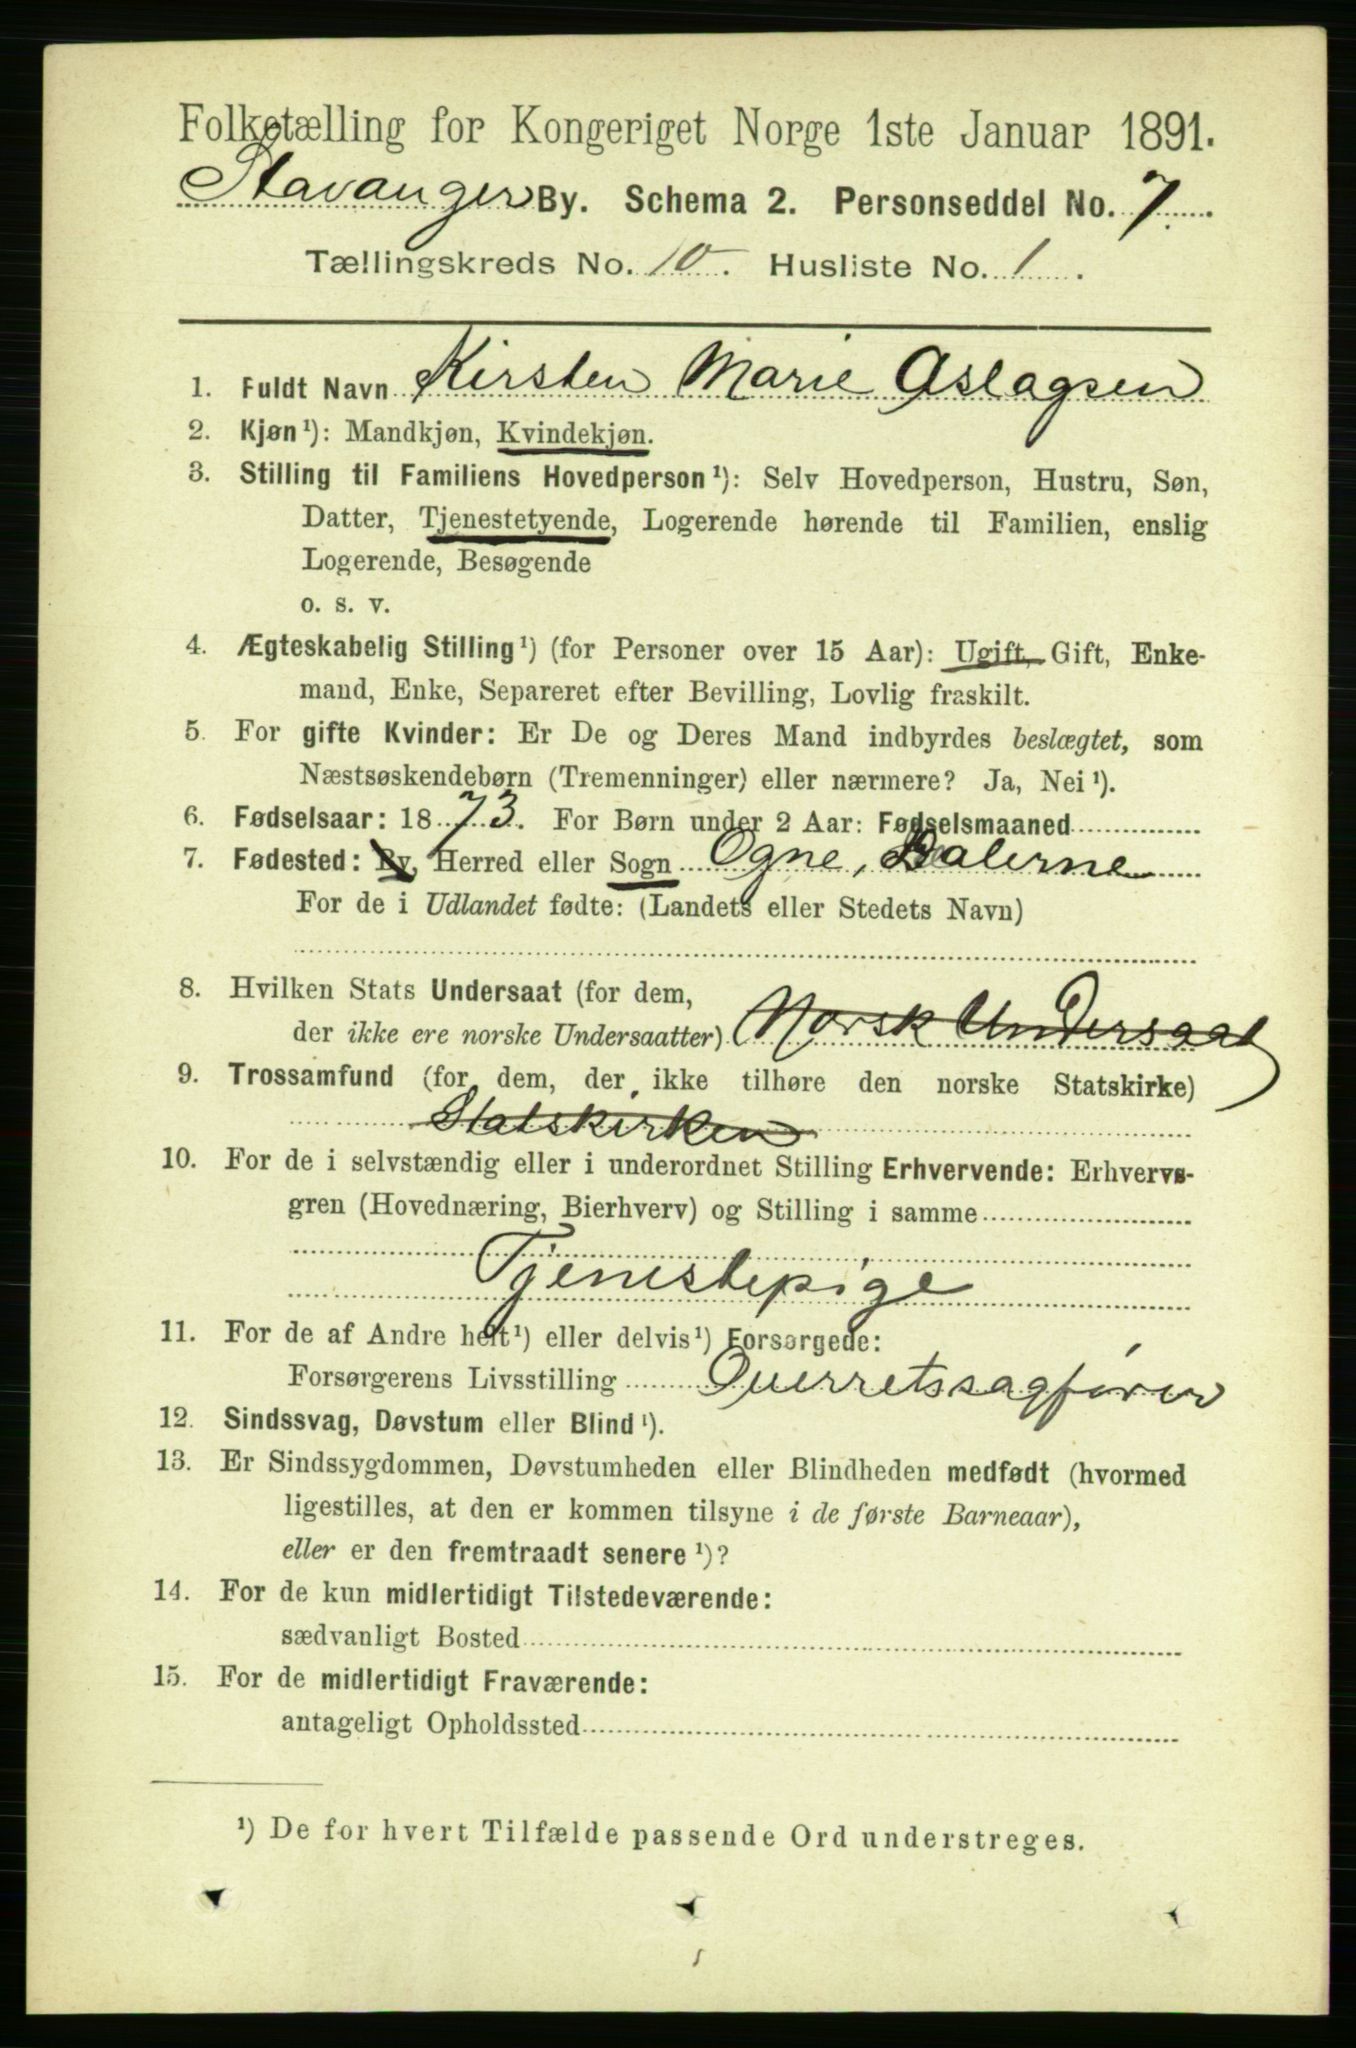 Folketælling for Kongeriget Norge 1ste Januar 1891.
Stavanger By. Schema 2. Personseddel No. 7.
Tællingskreds No. 10. Husliste No. 1.
1. Fuldt Navn Kirsten Marie Aslagsen
2. Kjøn ¹): Mandkjøn, Kvindekjøn.
3. Stilling til Familiens Hovedperson ¹): Selv Hovedperson, Hustru, Søn,
Datter, Tjenestetyende, Logerende hørende til Familien, enslig
Logerende, Besøgende
o. s. v.
4. Ægteskabelig Stilling ¹) (for Personer over 15 Aar): Ugift, Gift, Enke-
mand, Enke, Separeret efter Bevilling, Lovlig fraskilt.
5. For gifte Kvinder: Er De og Deres Mand indbyrdes beslægtet, som
Næstsøskendebørn (Tremenninger) eller nærmere? Ja, Nei ¹).
6. Fødselsaar: 1873. For Børn under 2 Aar: Fødselsmaaned
7. Fødested: By, Herred eller Sogn Ogne, Dalerne
For de i Udlandet fødte: (Landets eller Stedets Navn)
8. Hvilken Stats Undersaat (for dem,
der ikke ere norske Undersaatter) Norsk Undersaat
9. Trossamfund (for dem, der ikke tilhøre den norske Statskirke)
Statskirken
10. For de i selvstændig eller i underordnet Stilling Erhvervende: Erhvervs-
gren (Hovednæring, Bierhverv) og Stilling i samme
Tjenestepige
11. For de af Andre helt ¹) eller delvis ¹) Forsørgede:
Forsørgerens Livsstilling Overretssagfører
12. Sindssvag, Døvstum eller Blind ¹).
13. Er Sindssygdommen, Døvstumheden eller Blindheden medfødt (hvormed
ligestilles, at den er kommen tilsyne i de første Barneaar),
eller er den fremtraadt senere ¹)?
14. For de kun midlertidigt Tilstedeværende:
sædvanligt Bosted
15. For de midlertidigt Fraværende:
antageligt Opholdssted
¹) De for hvert Tilfælde passende Ord understreges.